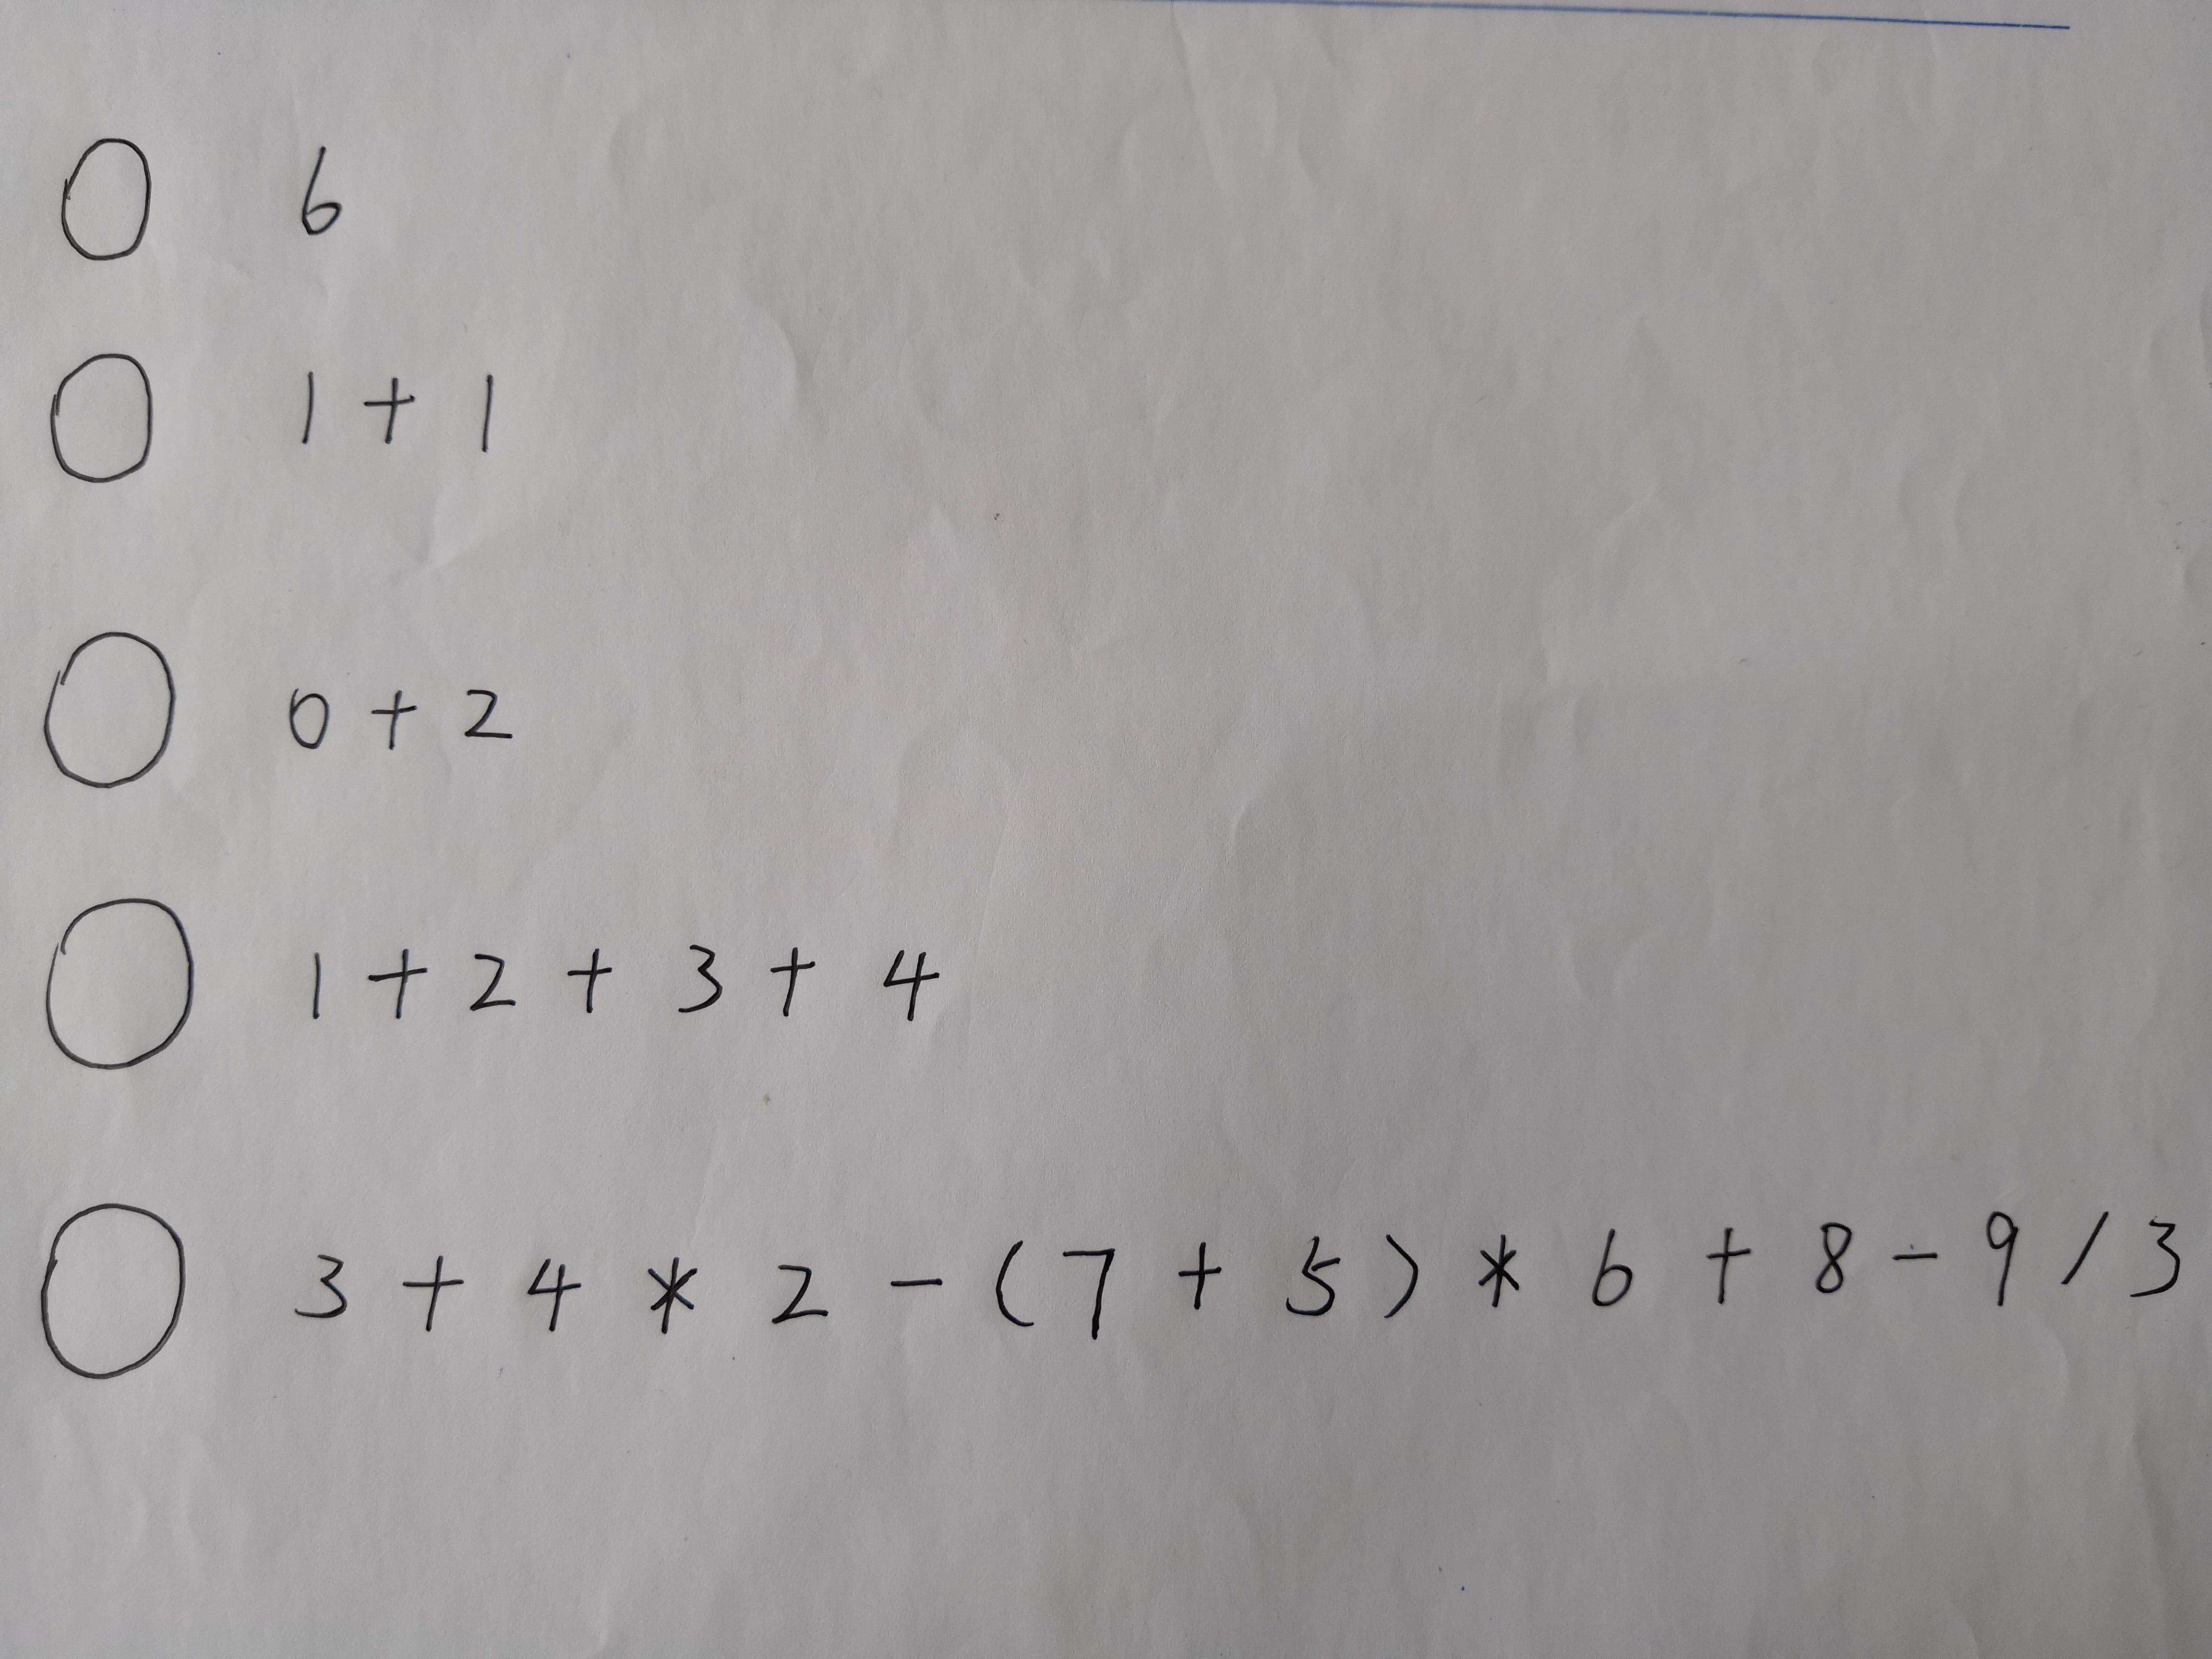 6
1 + 1
0 + 2
1 + 2 + 3 + 4
3 + 4 * 2 - ( 7 + 5 ) * 6 + 8 - 9 / 3